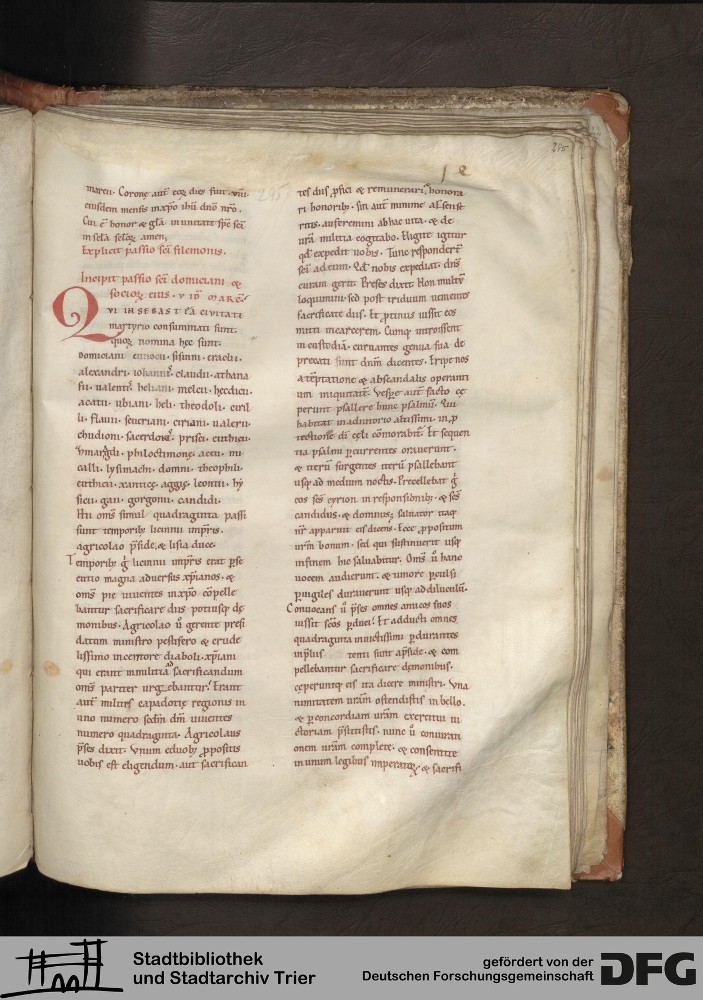 285
marcii. Coronę aūt eoꝝ dies sunt. viii
eiusdem mensis in xp̄o ihū dn̄o nr̄o.
Cui ē honor & gl̄a in unitate sp̄c sc̄i
in sc̄la sc̄loꝝ amen.
Explicit passio sc̄i filemonis.
Incipit passio sc̄i domiciani &
socioꝝ eius. v id̄ marc̄.
Qvi in sebastea civitate
martyrio consummati sunt.
quoꝝ nomina hęc sunt.
domiciani eunocii. sisinni. eraclii.
alexandri. iohannis. claudii. athana
sii. ualentis. heliani. melcii. heedicii.
acatii. ubiani. heli. theodoli. ciril
li. flauii. seueriani. ciriani. ualerii.
chudioni. sacerdonis. prisci. euthicii.
smaragdi. philoctimonę. aetii. mi
calli. lysimachi. domni. theophili.
euthicii. xantice. aggię. leontii. hy
sicii. gaii. gorgonii. candidi.
Hii om̄s simul quadraginta passi
sunt temporib; licinnii imp̄ris.
agricolao p̄side. & lisia duce.
Temporib; g̊ licinnii imp̄ris erat p̄se
cutio magna aduersus xp̄ianos. &
om̄s pie uiuentes in xp̄o cōpelle
bantur sacrificare diis potiusq̨ dę
monibus. Agricolao ů gerente presi
datum ministro pestifero & crude
lissimo incentore diaboli. xp̄iani
qui erant in militia ad sacrificandum
om̄s pariter urgebantur. Erant
autē milites capadotię regionis in
uno numero sc̄dm dm̄ uiuentes
numero quadraginta. Agricolaus
p̄ses dixit. Vnum e duob; ꝓpositis
uobis est eligendum. aut sacrifican
tes diis ꝓfici & remunerari, honora
ri honorib;. sin aūt minime assense
ritis. auferemini ab hac uita. & de
urā militia cogitabo. Eligite igitur
qd̄ expedit uobis. Tunc responderēt
sc̄i ad eum. Qd̄ nobis expediat. dn̄s
curam gerit. Preses dixit. Non multū
loquimini. sed post triduum uenientes
sacrificate diis. Et ꝓtinus iussit eos
mitti in carcerem. Cumq; introissent
in custodiā. curuantes genua sua de
precati sunt dnm̄ dicentes. Eripe nos
a tēptatione & ab scandalis operanti
um iniquitatē. Vespe aūt facto cę
perunt psallere hunc psalmū. Qui
habitat in adiutorio altissimi. in ꝓ
tectione di cęli cōmorabit̄. Et sequen
tia psalmi ꝑcurrentes orauerunt.
& iterū surgentes iterū psallebant
usq; ad medium noctis. Precellebat g̊
eos sc̄s cyrion in responsionib;. & sc̄s
candidus. & domnus. saluator itaq;
nr̄ apparuit eis dicens. Ecce ꝓpositum
urm̄ bonum. sed qui sustinuerit usq;
in finem hic saluabitur. Om̄s ů hanc
uocem audierunt. & timore ꝑculsi
ꝑuigiles durauerunt usq; ad diluculū.
Conuocans ů p̄ses omnes amicos suos
iussit sc̄os ꝑduci. Et adducti omnes
quadraginta inuictissimi ꝑdurantes
in p̄lius tenti sunt a p̄side. & com
pellebantur sacrificare dęmonibus.
cęperuntq; eis ita dicere ministri. Vna
nimitatem uram̄ ostendistis in bello.
& ꝑ concordiam uram̄ exercitui ui
ctoriam p̄stitistis. nunc ů coniurati
onem uram̄ complete. & consentite
in unum legibus imperatoꝝ. & sacrifi
Stadtbibliothek
und Stadtarchiv Trier
gefördert von der
Deutschen Forschungsgemeinschaft
DFG